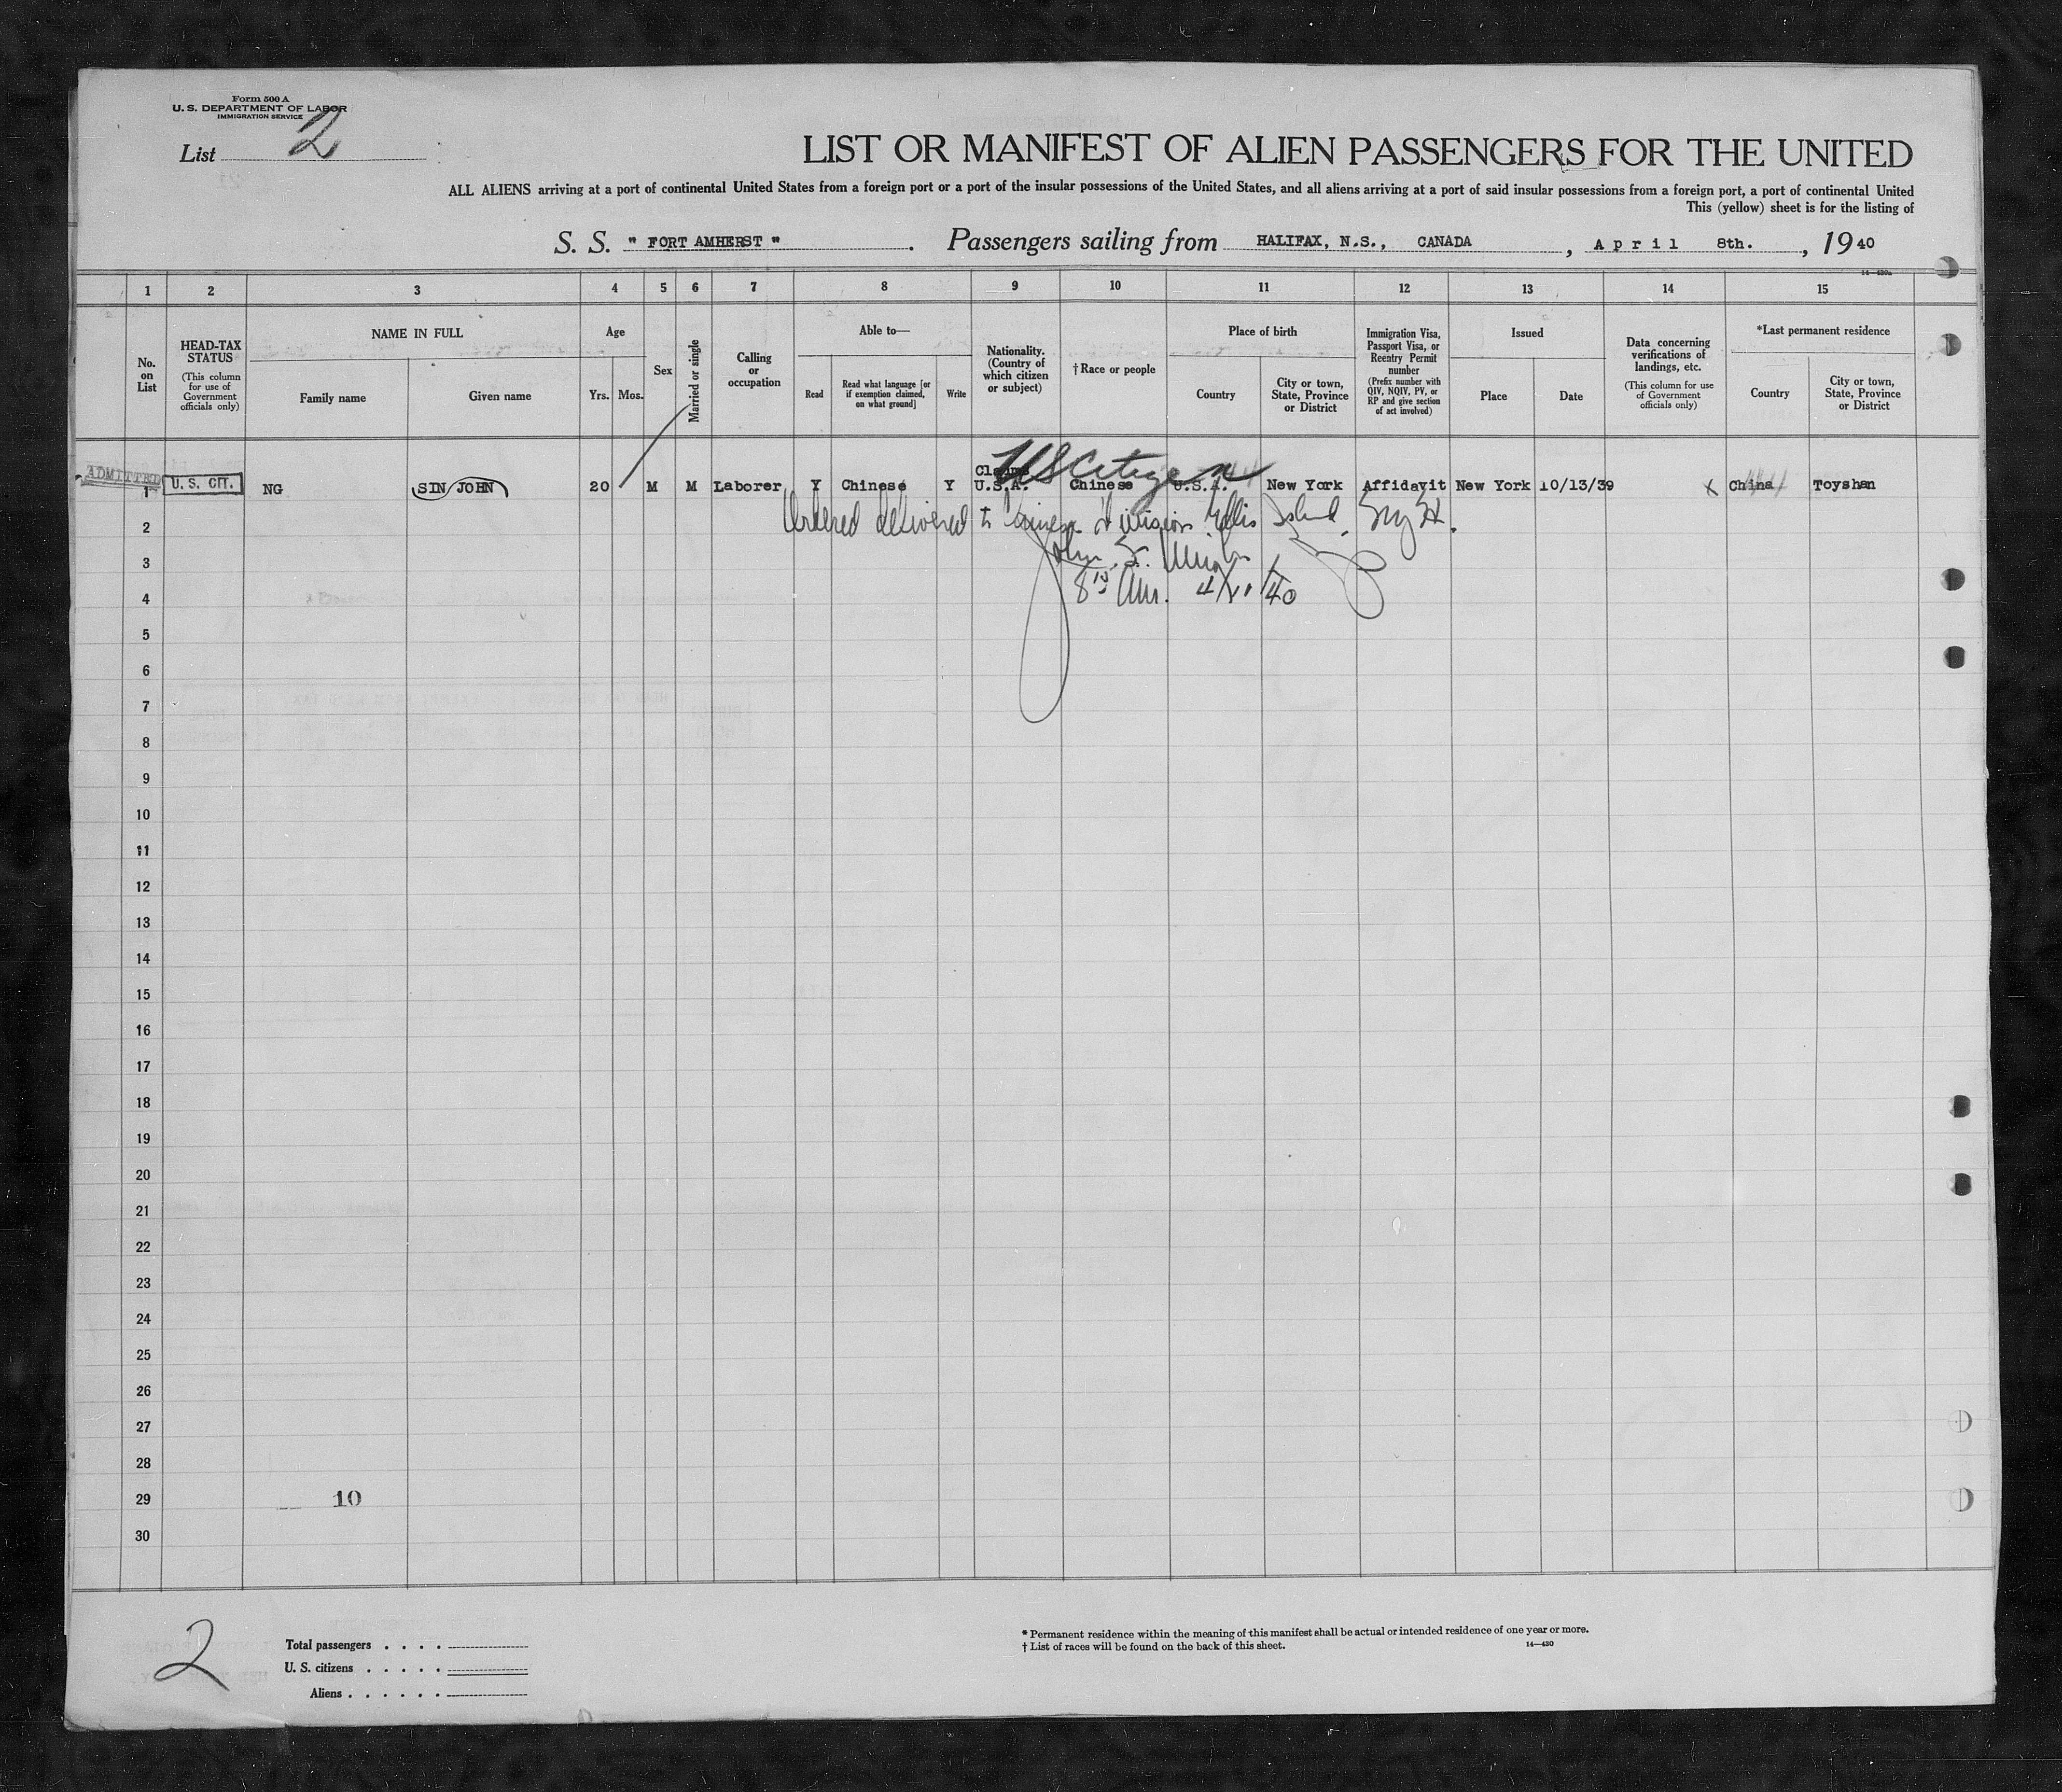 Form 500 A
U. S. DEPARTMENT OF LABOR
IMMIGRATION SERVICE
List 2
LIST OR MANIFEST OF ALIEN PASSENGERS FOR THE UNITED
ALL ALIENS arriving at a port of continental United States from a foreign port or a port of the insular possessions of the United States, and all aliens arriving at a port of said insular possessions from a foreign port, a port of continental United
This (yellow) sheet is for the listing of
S. S. " FORT AMHERST " . Passengers sailing from HALIFAX, N.S., CANADA , April 8th. , 19 40
1 2 3 4 5 6 7 8 9 10 11 12 13 14 15
No. on List
HEAD-TAX STATUS (This column for use of Government officials only)
NAME IN FULL
Family name
Given name
Age
Yrs. Mos.
Sex
Married or single
Calling or occupation
Able to—
Read
Read what language [or if exemption claimed, on what ground]
Write
Nationality. (Country of which citizen or subject)
†Race or people
Place of birth
Country
City or town, State, Province or District
Immigration Visa, Passport Visa, or Reentry Permit number (Prefix number with QIV, NQIV, PV, or RP and give section of act involved)
Issued
Place
Date
Data concerning verifications of landings, etc. (This column for use of Government officials only)
*Last permanent residence
Country
City or town, State, Province or District
US Citizen
ADMITTED
1 U. S. CIT. NG SIN JOHN 20 M M Laborer Y Chinese Y Claims U.S.A. Chinese U.S.A. New York Affidavit New York 10/13/39 x China Toyshan
2 Ordered delivered to Chinese division Ellis Island, N.Y.H.
3 John
4 4/11/40
5
6
7
8
9
10
11
12
13
14
15
16
17
18
19
20
21
22
23
24
25
26
27
28
29 10
30
2
Total passengers . . . .
U. S. citizens . . . . .
Aliens . . . . . .
* Permanent residence within the meaning of this manifest shall be actual or intended residence of one year or more.
† List of races will be found on the back of this sheet.
14—430